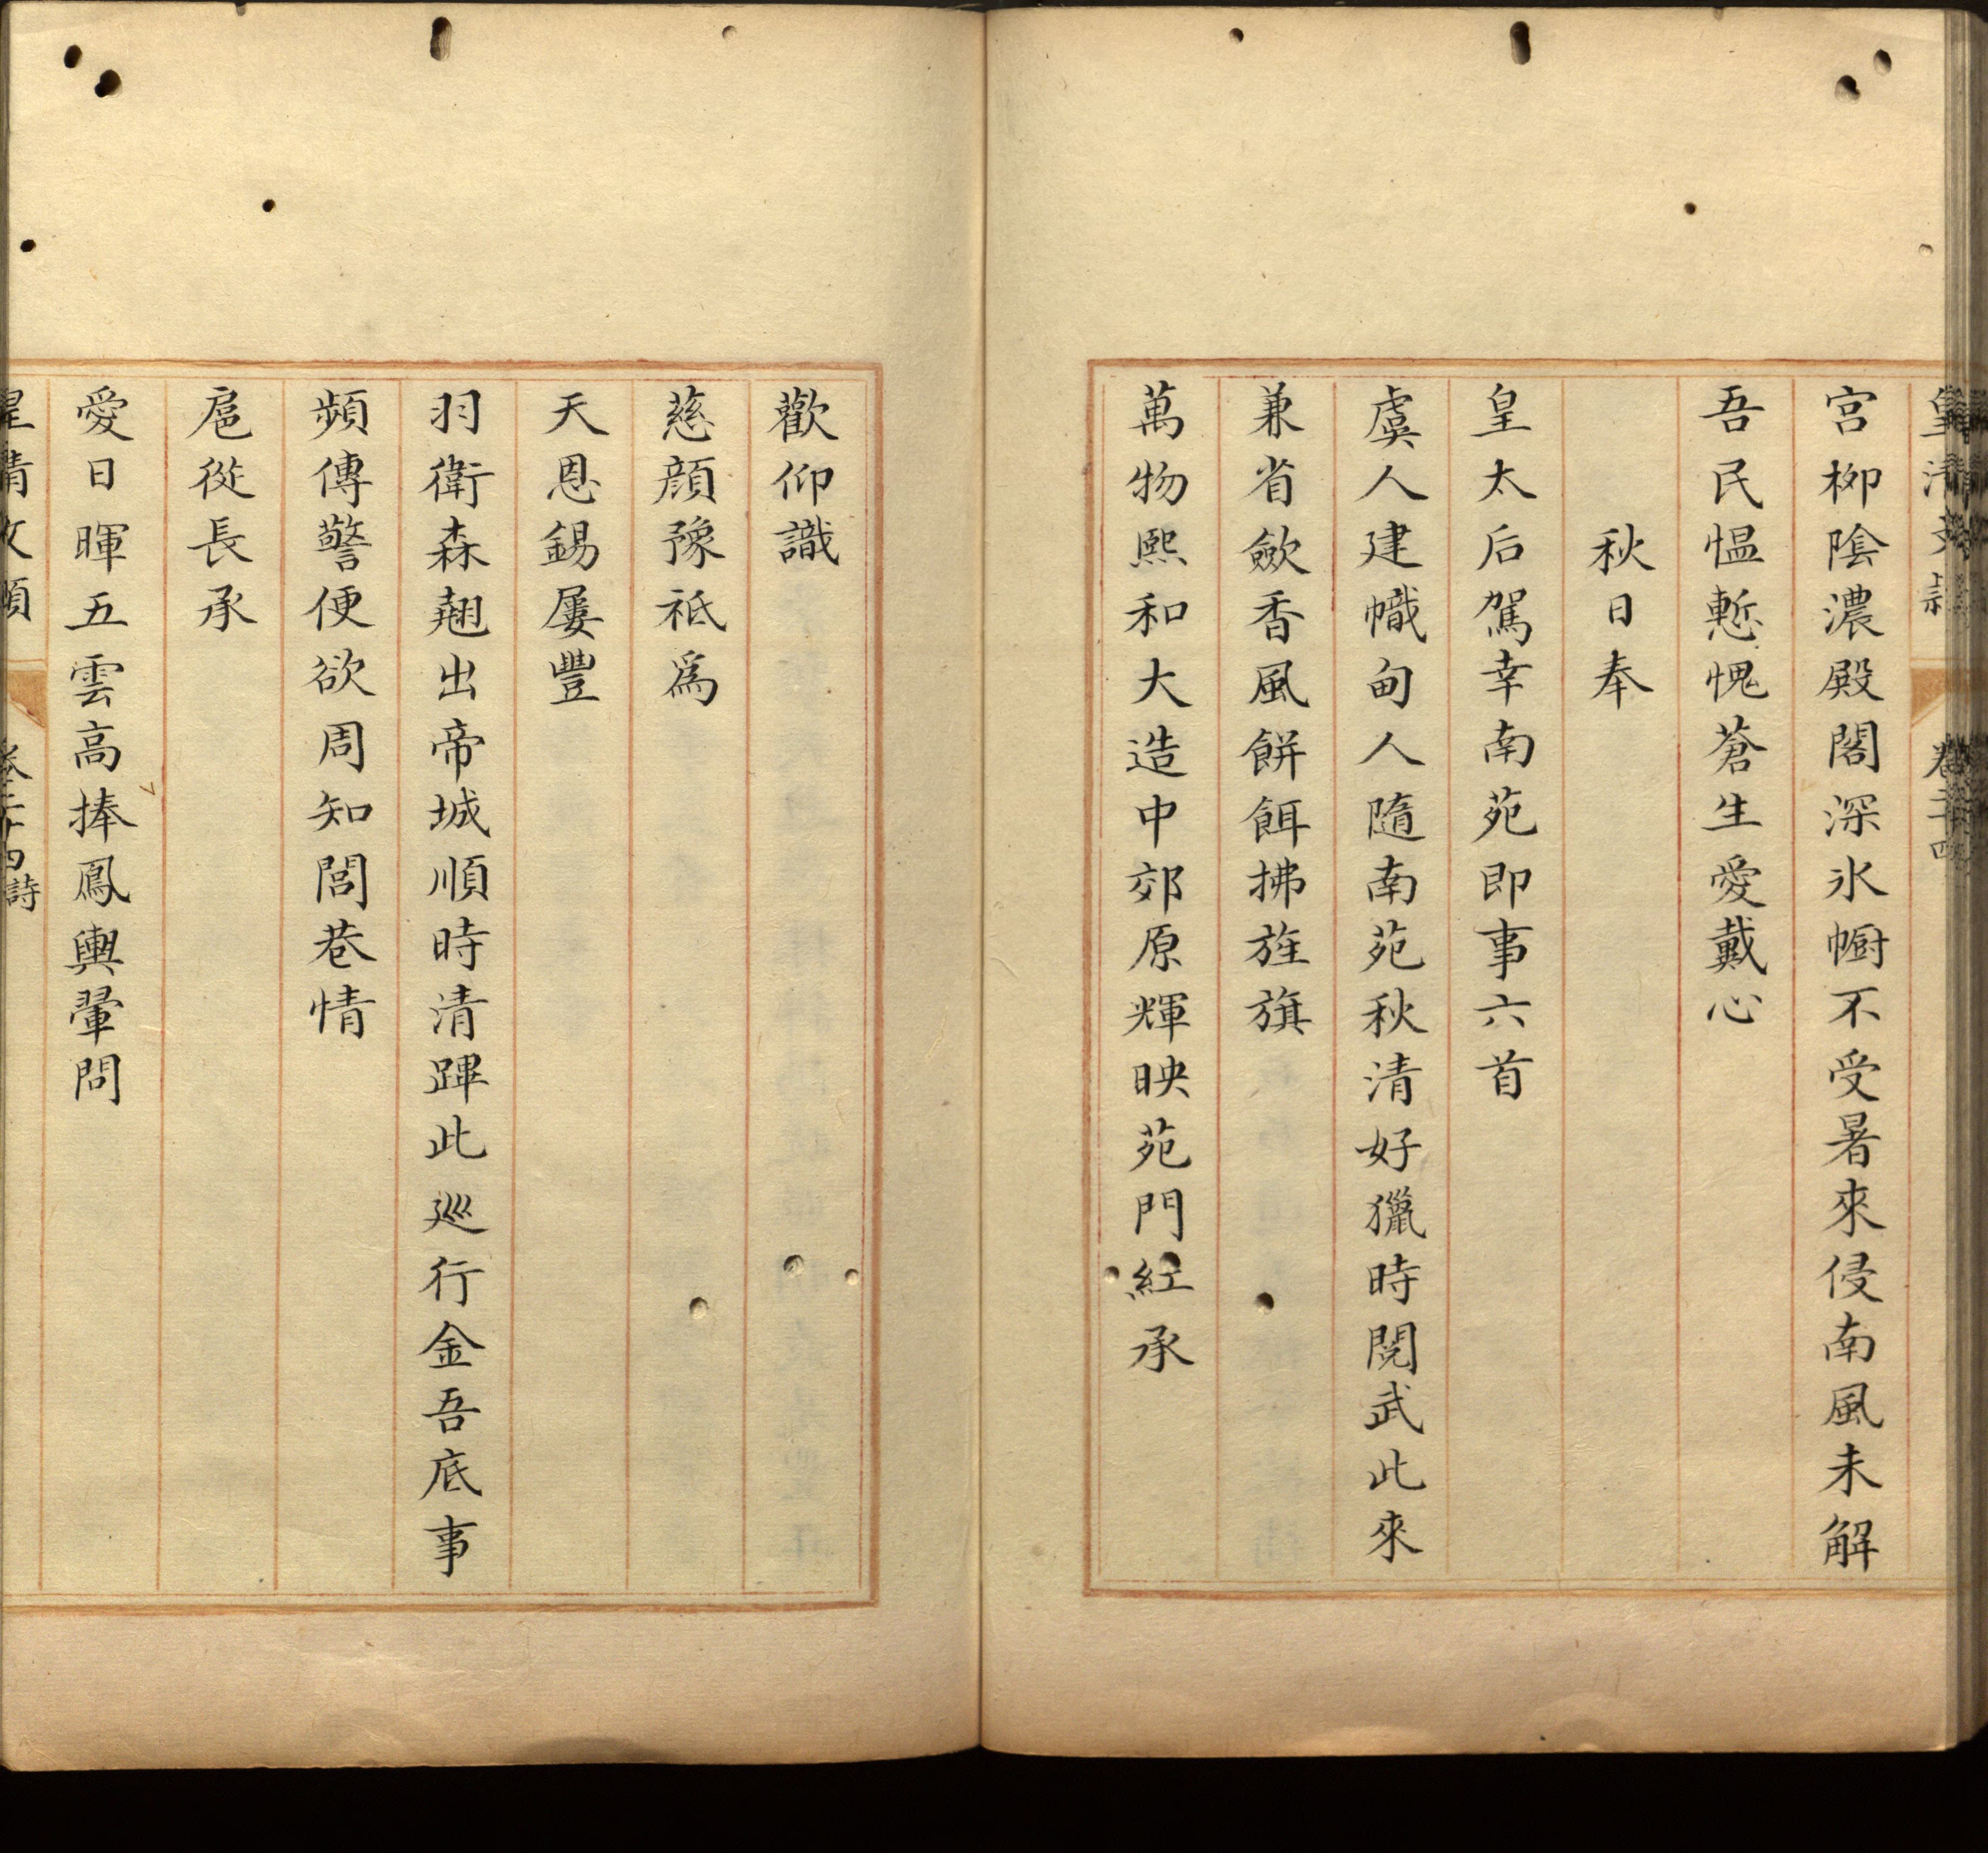 皇清文穎 卷二十四
宮柳陰濃殿閣深氷㡡不受暑來侵南風未解
吾民愠慙愧蒼生愛戴心
秋日奉
皇太后駕幸南苑即事六首
虞人建幟甸人隨南苑秋清好獵時閱武此來
兼省歛香風餅餌拂旌旗
萬物熙和大造中郊原輝映苑門紅承
歡仰識
慈顔豫祗爲
天恩錫屢豐
羽衛森翹出帝城順時清蹕此巡行金吾底事
頻傳警便欲周知閭巷情
扈從長承
愛日暉五雲高捧鳳輿翬問
皇清文穎 卷二十四詩